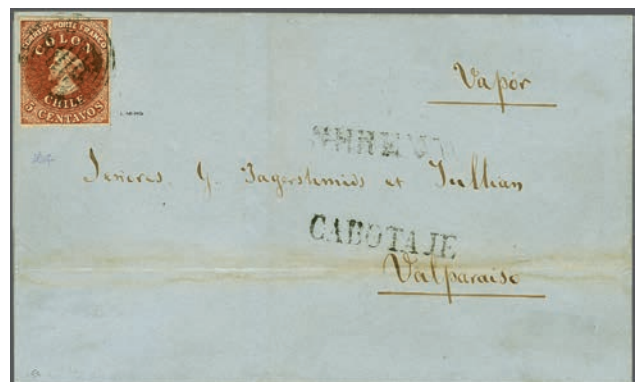 CORREOS PORTE FRANCO
COLON
CHILE
5 CENTAVOS
Vapór
Señores. G. et Jullian
CABOTAJE
Valparaiso